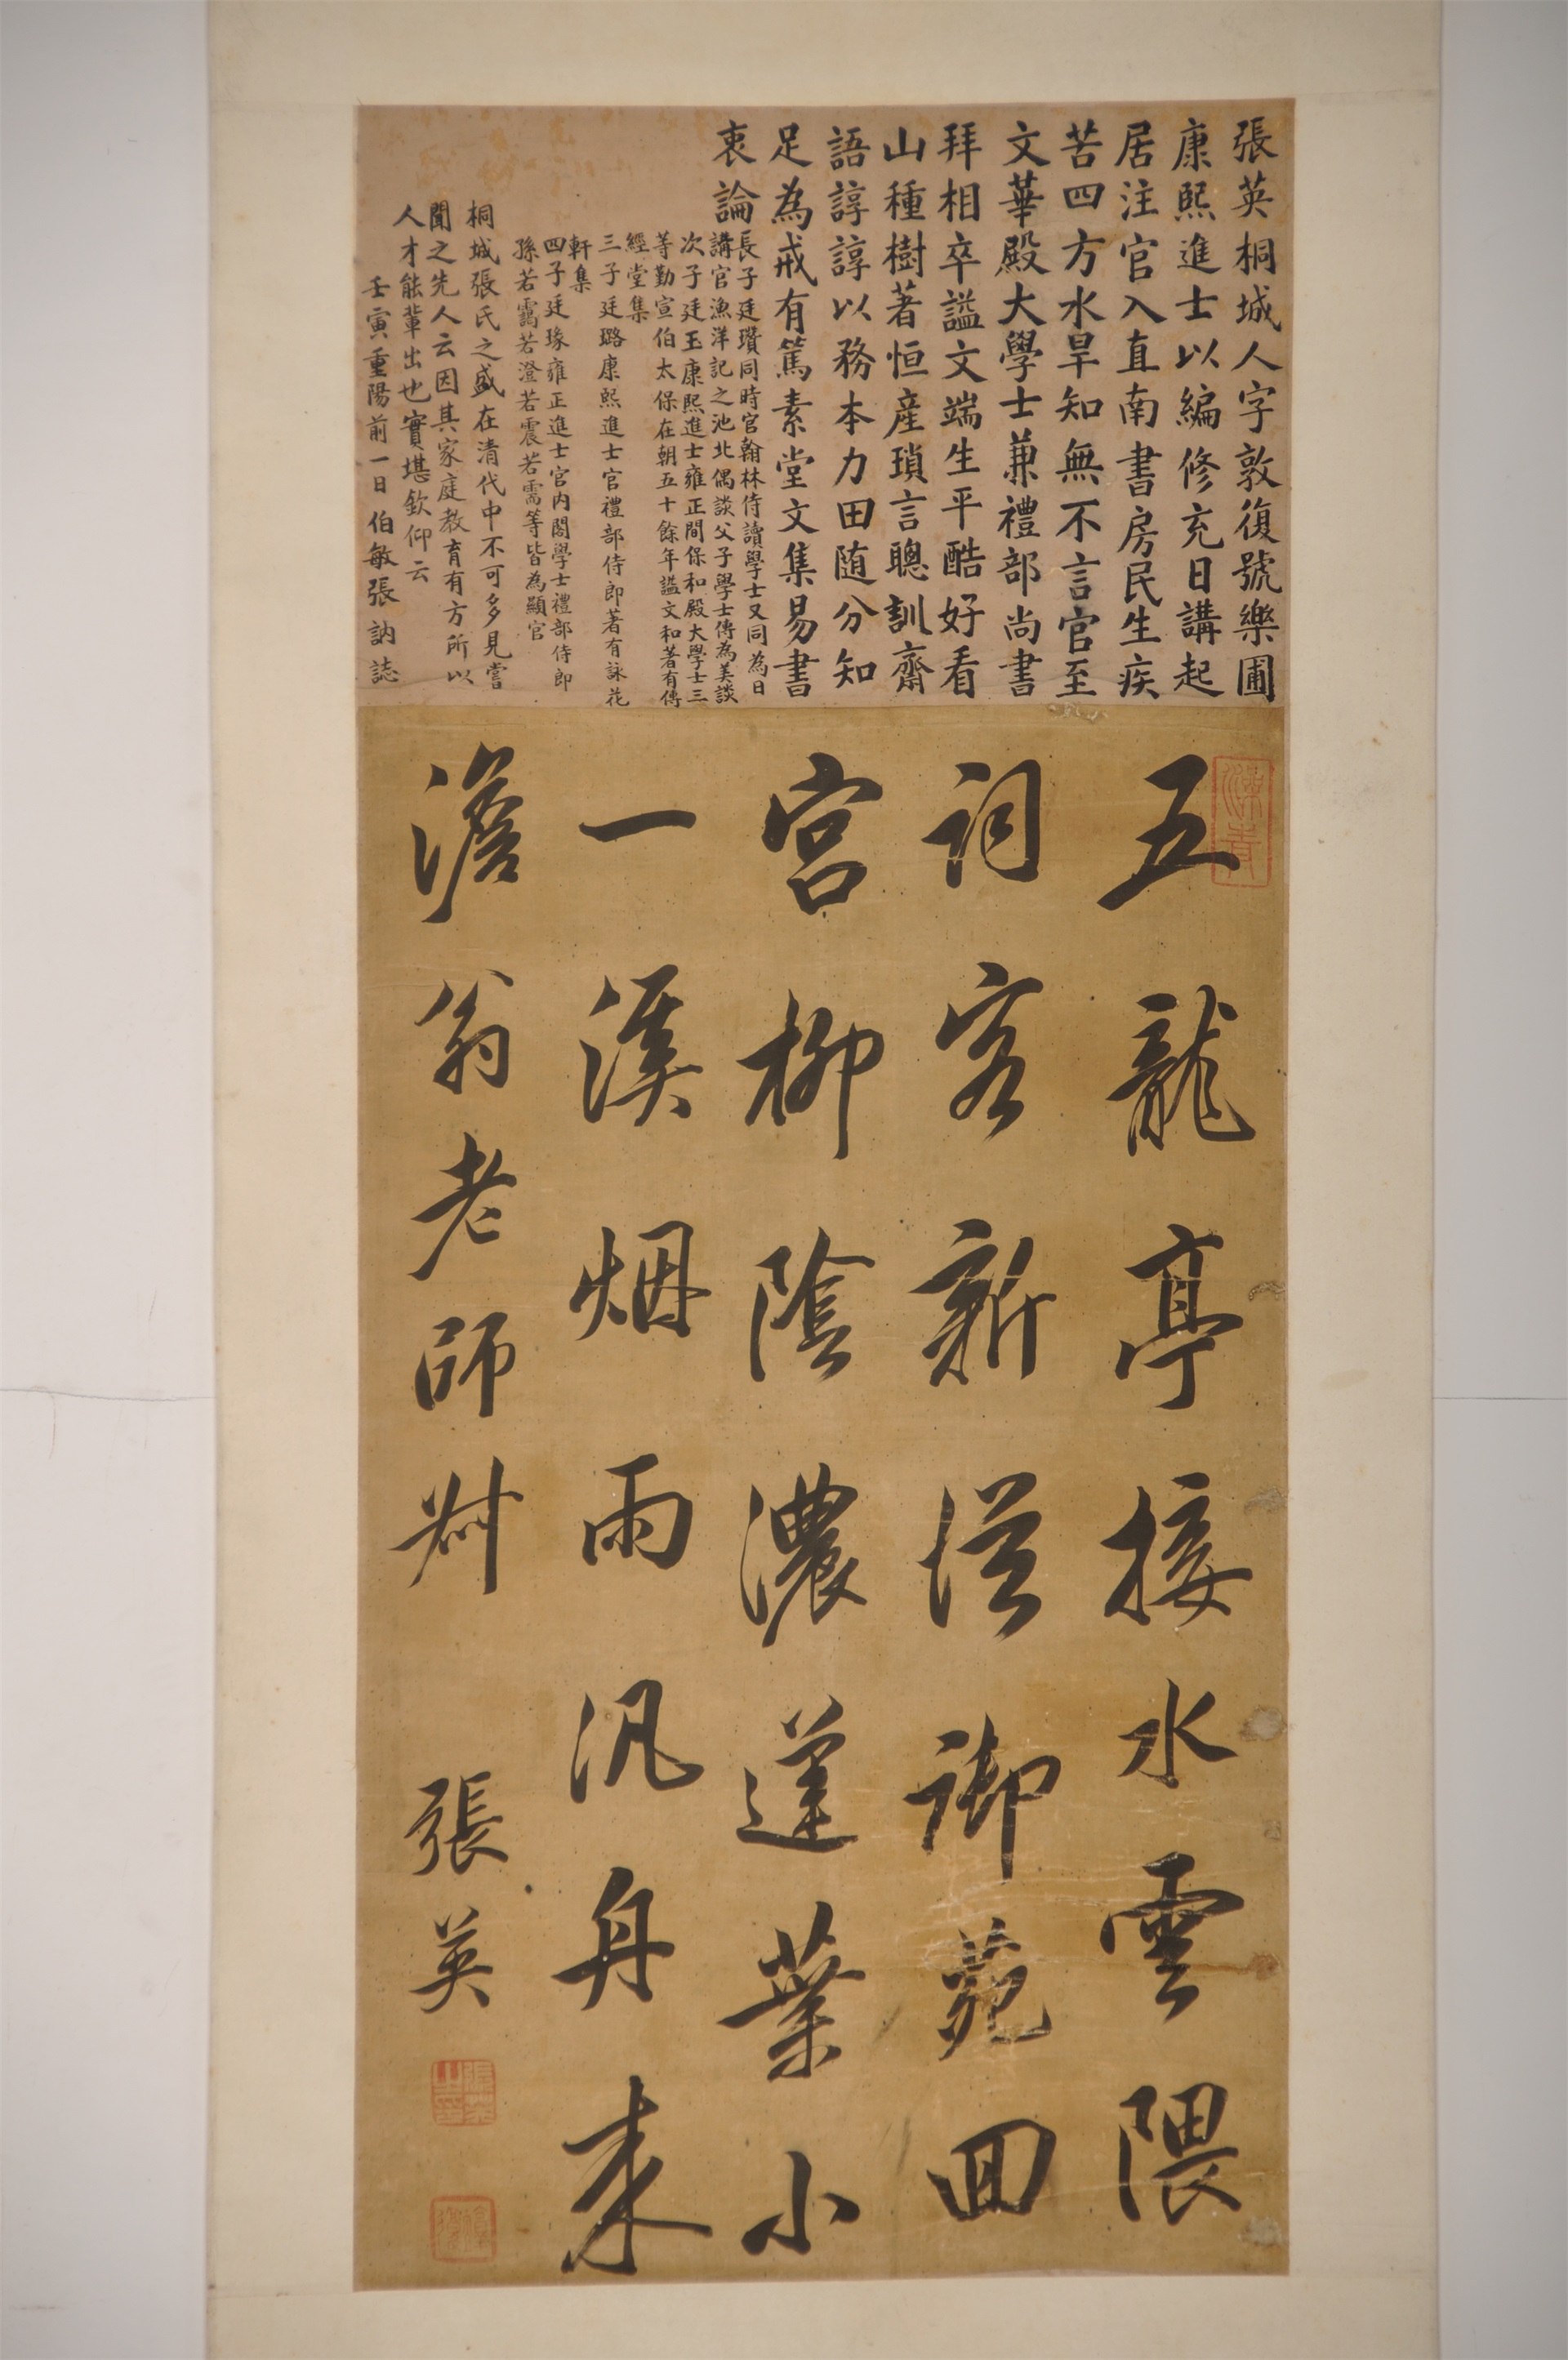 張英桐城人字敦復號樂圃
康熙進士以編修充日講起
居注官入直南書房民生疾
苦四方水旱知無不言官至
文華殿大學士兼禮部尚書
拜相卒謚文端生平酷好看
山種樹著恒產瑣言聰訓齋
語諄諄以務本力田随分知
足為戒有篤素堂文集易書
衷論
長子廷瓚同時官翰林侍讀學士又同為日
講官漁洋記之池北偶談父子學士傳為美談
次子廷玉康熙進士雍正間保和殿大學士三
等勤宣伯太保在朝五十餘年謚文和著有傳
經堂集
三子廷璐康熙進士官禮部侍郎著有詠花
軒集
四子廷瑑雍正進士官内閣學士禮部侍郎
孫若靄若澄若震若需等皆為顯官
桐城張氏之盛在清代中不可多見嘗
聞之先人云因其家庭教育有方所以
人才能輩出也實堪欽仰云
壬寅重陽前一日伯敏張訥誌
五龍亭接水雲隈
詞客新從御苑回
宮柳陰濃蓮葉小
一溪烟雨汎舟來
澹翁老師 張英
張英之印